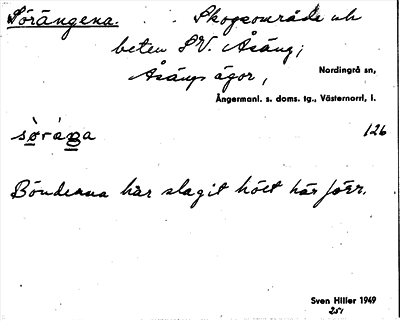 Sörängena. Skogsområde och
beten SV. Åsäng;
Åsängs ägor,
Nordingrå sn,
Ångermanl. s. doms. tg., Västernorrl, l.
126
Bönderna har slagit höet här förr.
Sven Hiller 1949
251